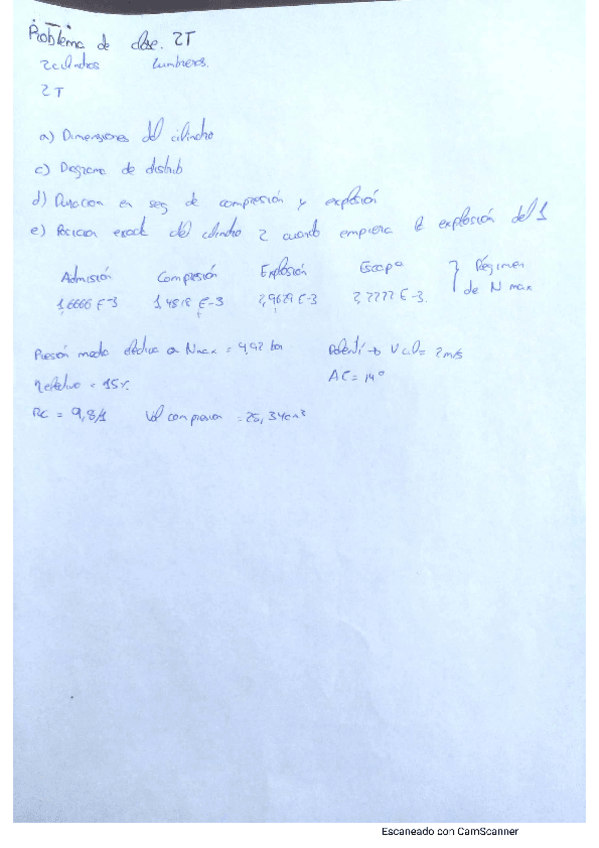 Problema de clase. 2T
2 cilindros lumbreras.
2T
a) Dimensiones del cilindro
c) Diagrama de distrib
d) Duracion en seg de compresión y explosión
e) Posicion exact del cilindro 2 cuando empieza la explosión del 1
Admisión Compresión Explosión Escape } Régimen
1,6666 E-3 1,4818 E-3 2,9629 E-3 2,7777 E-3 de N max
Presión media efectiva a Nmax = 4,92 bar Ralentí → = 2m/s
η efectivo = 15%. AE = 14°
RC = 9,8/1 Vol compresion = 25,34cm³
Escaneado con CamScanner